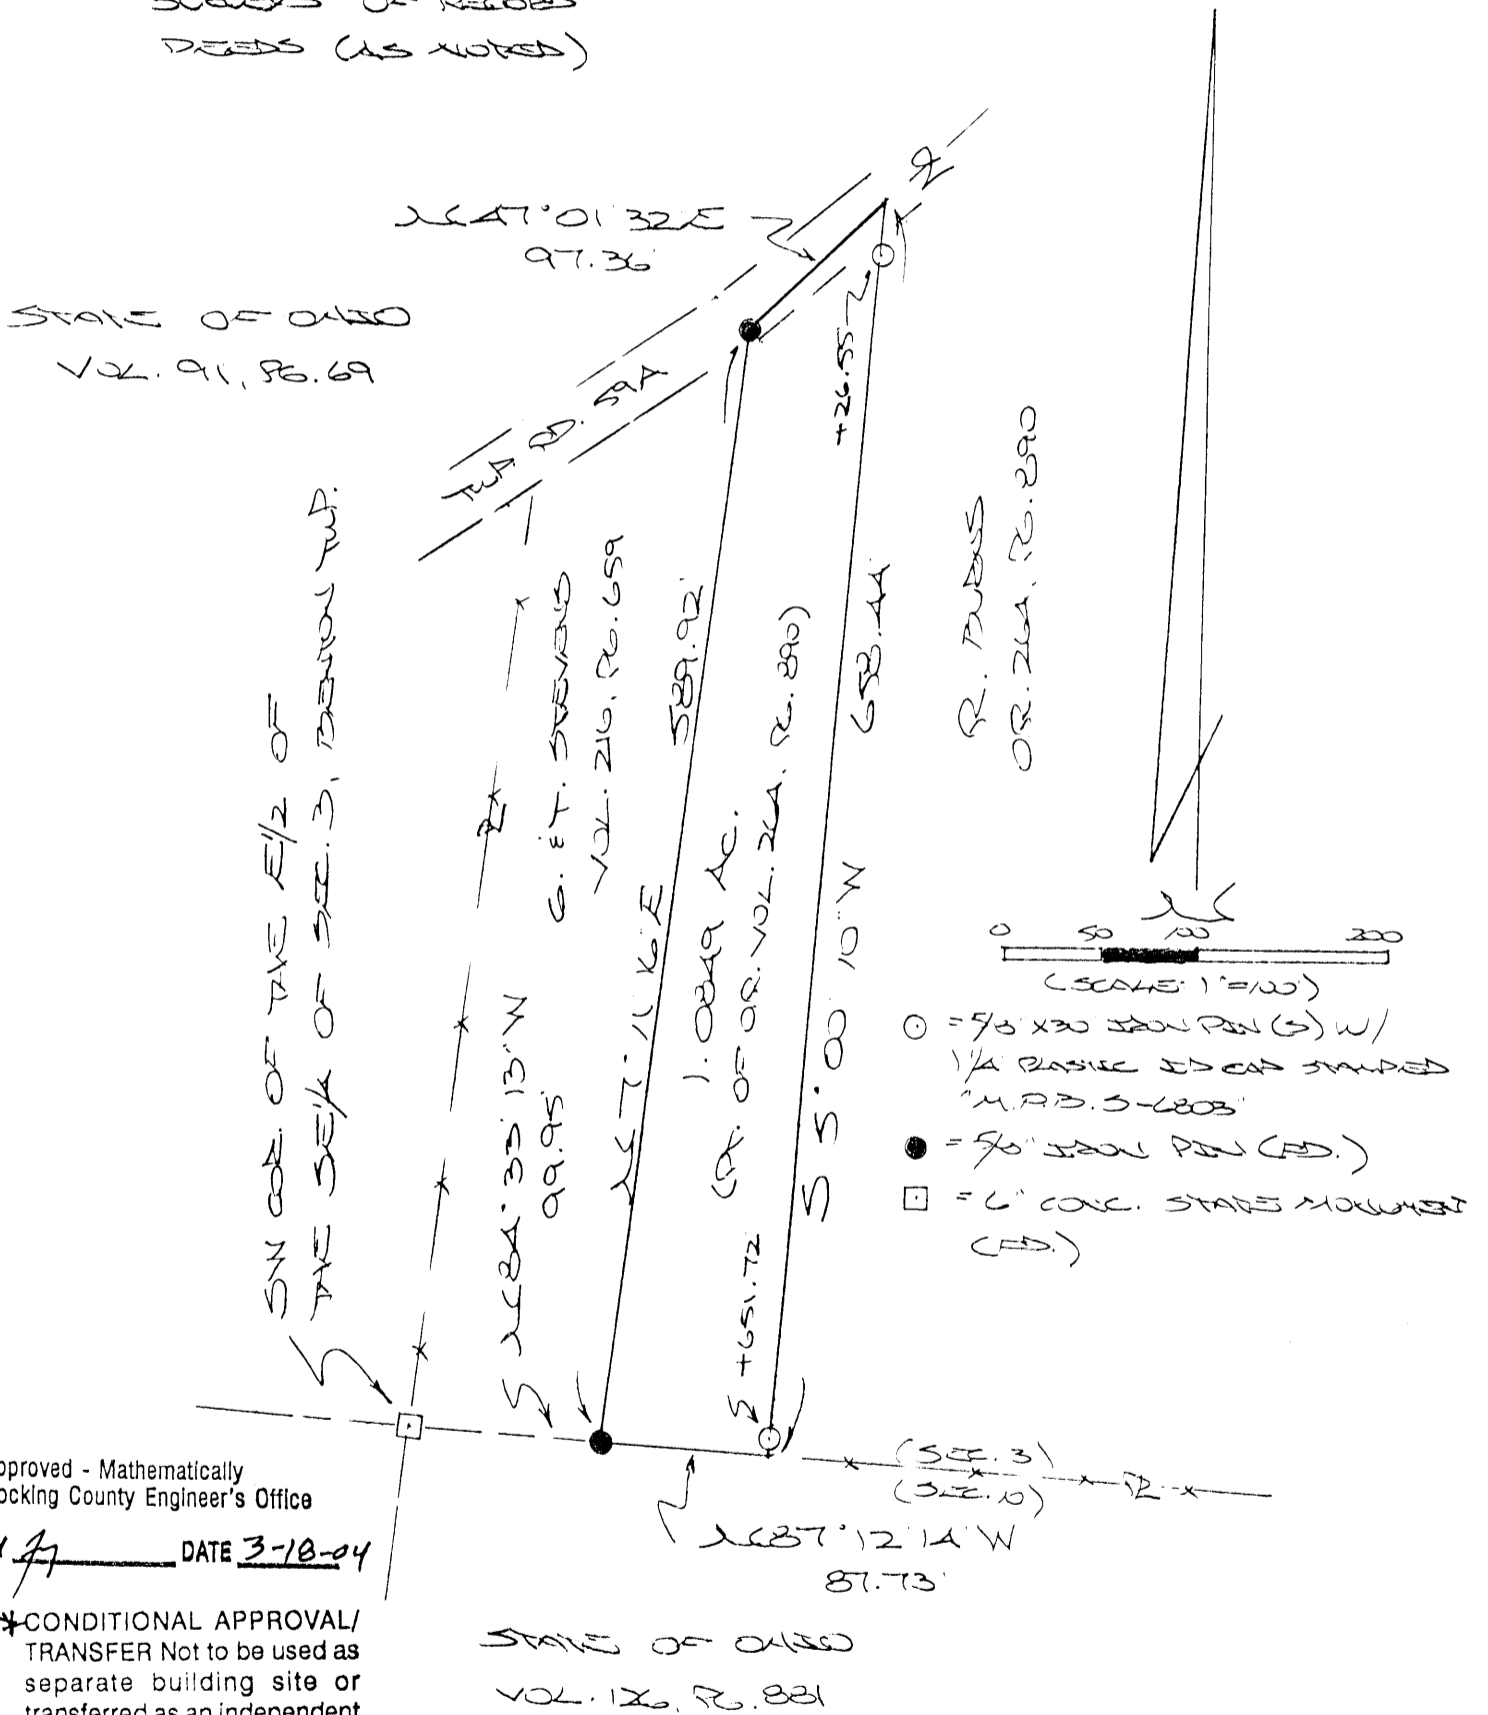 SURVEYS OF RECORD
DEEDS (AS NOTED)
N 47° 01' 32" E
97.36'
STATE OF OHIO
VOL. 91, PG. 69
TWP. RD. 59A
+26.55'
SW COR. OF THE E 1/2 OF
THE SE 1/4 OF SEC. 3, BENTON TWP.
G. & T.
VOL. 216, PG. 659
589.92'
N 7° 11' 16" E
1.0849 AC.
(PT. OF O.R. VOL. 264, PG. 890)
658.44'
S 5° 00' 10" W
R.
O.R. 264, PG. 890
N 84° 33' 13" W
99.95'
+651.72
N
0 50 100 200
(SCALE: 1"=100')
= 5/8" X 30" IRON PIN (S) W/
1 1/4" PLASTIC ID CAP STAMPED
"M.P.B. S-6803"
= 5/8" IRON PIN (FD.)
= 6" CONC. STATE MONUMENT
(FD.)
(SEC. 3)
(SEC. 10)
N 87° 12' 14" W
87.73'
STATE OF OHIO
VOL. 126, PG. 881
pproved - Mathematically
ocking County Engineer's Office
DATE 3-18-04
*CONDITIONAL APPROVAL/
TRANSFER Not to be used as
separate building site or
transferred as an independent